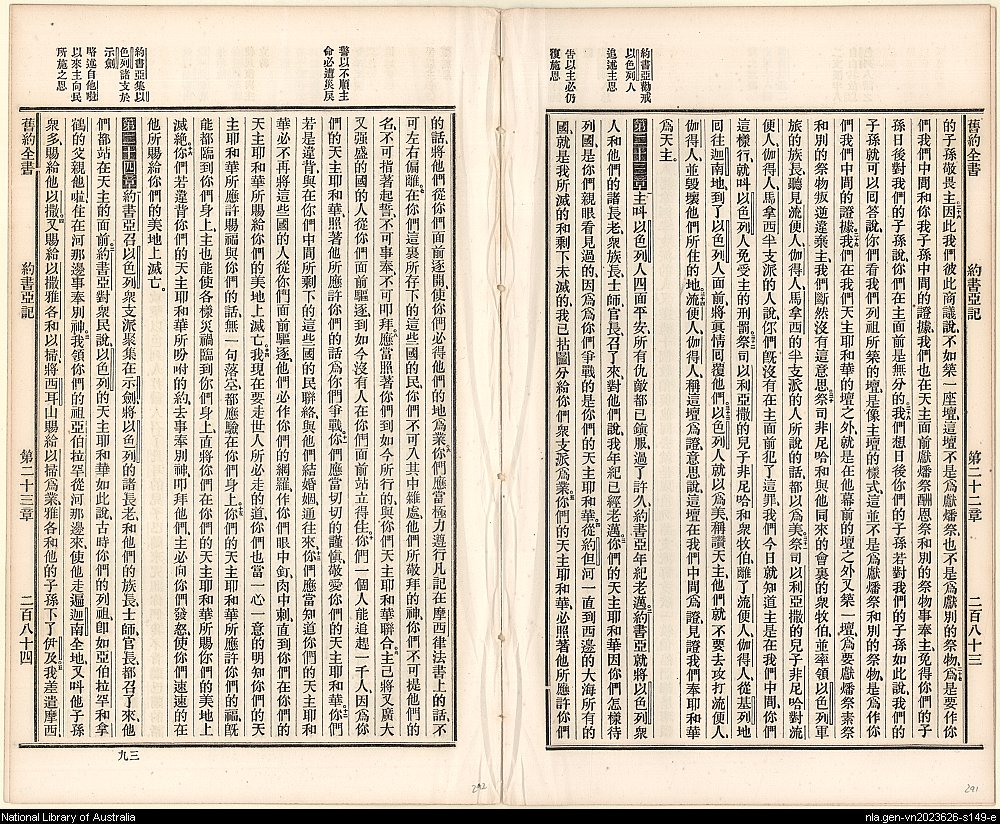 舊約全書 約書亞記 第二十二章 二百八十三
約書亞勸戒
以色列人
追述主恩
告以主必仍
覆施恩
的子孫敬畏主因此我們彼此商議說不如築一座壇這壇不是爲獻燔祭也不是爲獻別的祭物爲是要作你
們我們中間和你我子孫中間的證據我們也在天主面前獻燔祭酬恩祭和別的祭物事奉主免得你們的子
孫日後對我們的子孫說你們在主面前是無分的我們想日後你們的子孫若對我們的子孫如此說我們的
子孫就可以回答說你們看我們列祖所築的壇是像主壇的樣式這並不是爲獻燔祭和別的祭物是爲作你
們我們中間的證據我們在我們天主耶和華的壇之外就是在他幕前的壇之外又築一壇爲要獻燔祭素祭
和別的祭物叛逆違棄主我們斷然沒有這意思祭司非尼哈和與他同來的會裏的衆牧伯並率領以色列軍
旅的族長聽見流便人伽得人馬拿西的半支派的人所說的話都以爲美祭司以利亞撒的兒子非尼哈對流
便人伽得人馬拿西半支派的人說你們旣沒有在主面前犯了這罪我們今日就知道主是在我們中間你們
這樣行就叫以色列人免受主的刑罰祭司以利亞撒的兒子非尼哈和衆牧伯離了流便人伽得人從基列地
回往迦南地到了以色列人面前將眞情回覆他們以色列人就以爲美稱讚天主他們就不要去攻打流便人
伽得人並毀壞他們所住的地流便人伽得人稱這壇爲證意思說這壇在我們中間爲證見證我們奉耶和華
爲天主
第二十三章主叫以色列人四面平安所有仇敵都已鎭服過了許久約書亞年紀老邁約書亞就將以色列衆
人和他們的諸長老衆族長士師官長召了來對他們說我年紀已經老邁你們的天主耶和華因你們怎樣待
列國是你們親眼看見過的因爲爲你們爭戰的是你們的天主耶和華從約但河一直到西邊的大海所有的
國就是我所滅的和剩下未滅的我已拈鬮分給你們衆支派爲業你們的天主耶和華必照著他所應許你們
警以不順主
命必遭災戾
約書亞集以
色列諸支於
示劍
略述自他喇
以來主向民
所施之恩
的話將他們從你們面前逐開使你們必得他們的地爲業你們應當極力遵行凡記在摩西律法書上的話不
可左右偏離在你們這裏所存下的這些國的民你們不可入其中雜處他們所敬拜的神你們不可提他們的
名不可指著起誓不可事奉不可叩拜應當照著你們到如今所行的與你們天主耶和華聯合主已將又廣大
又强盛的國的人從你們面前驅逐到如今沒有人在你們面前站立得住你們一個人能追趕一千人因爲你
們的天主耶和華照著他所應許你們的話爲你們爭戰你們應當切切的謹愼敬愛你們的天主耶和華你們
若是違背與在你們中間所剩下的這些國的民聯絡與他們結婚姻通往來你們應當知道你們的天主耶和
華必不再將這些國的人從你們面前驅逐他們必作你們的網羅作你們眼中釘肉中刺直到你們在你們的
天主耶和華所賜給你們的美地上滅亡我現在要走世人所必走的道你們也當一心一意的明知你們的天
主耶和華所應許賜福與你們的話無一句落空都應驗在你們身上你們的天主耶和華所應許你們的福旣
能都臨到你們身上主也能使各樣災禍臨到你們身上直將你們在你們的天主耶和華所賜你們的美地上
滅絶你們若違背你們的天主耶和華所吩咐的約去事奉別神叩拜他們主必向你們發怒使你們速速的在
他所賜給你們的美地上滅亡。
第二十四章約書亞召以色列衆支派聚集在示劍將以色列的諸長老和他們的族長士師官長都召了來他
們都站在天主的面前約書亞對衆民說以色列的天主耶和華如此說古時你們的列祖卽如亞伯拉罕和拿
鶴的父親他喇住在河那邊事奉別神我領你們的祖亞伯拉罕從河那邊來使他走遍迦南全地又叫他子孫
衆多賜給他以撒又賜給以撒雅各和以掃將西耳山賜給以掃爲業雅各和他的子孫下了伊及我差遣摩西
舊約全書 約書亞記 第二十三章 二百八十四
三九
292
291
National Library of Australia
nla.gen-vn2023626-s149-e